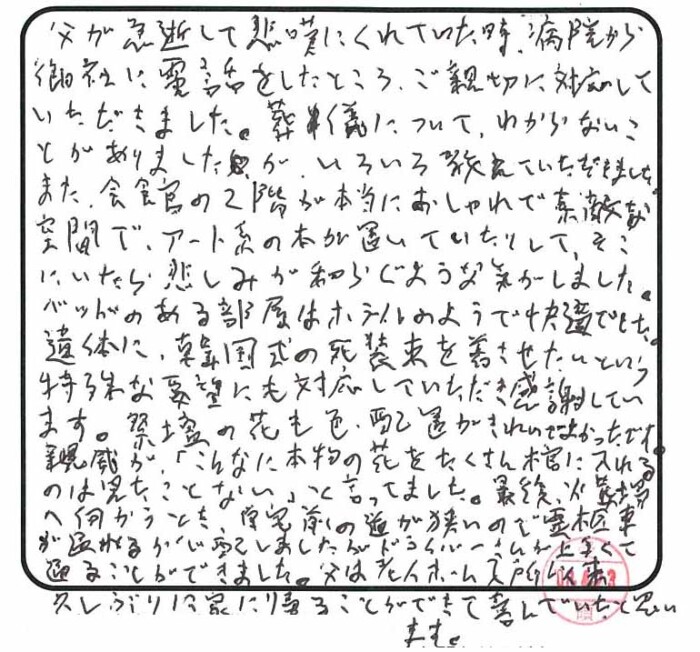 父が急逝して悲嘆にくれていた時、病院から
御社に電話をしたところ、ご親切に対応して
いただきました。葬儀について、わからないこ
とがありましたが、いろいろ教えていただきました。
また、会食室の2階が本当におしゃれで素敵な
空間で、アート系の本が置いていたりして、そこ
にいたら悲しみが和らぐような気がしました。
ベッドのある部屋はホテルのようで快適でした。
遺体に、韓国式の死装束を着させたいという
特殊な要望にも対応していただき感謝してい
ます。祭壇の花も色、配置がきれいでよかったです。
親戚が、「こんなに本物の花をたくさん棺に入れる
のは見たことない」と言ってました。最後、火葬場
へ向かうとき、自宅前の道が狭いので霊柩車
が通れるか心配しましたがドライバーさんが上手くて
通ることができました。父は老人ホーム入所以来
久しぶりに家に帰ることができて喜んでいたと思い
ます。